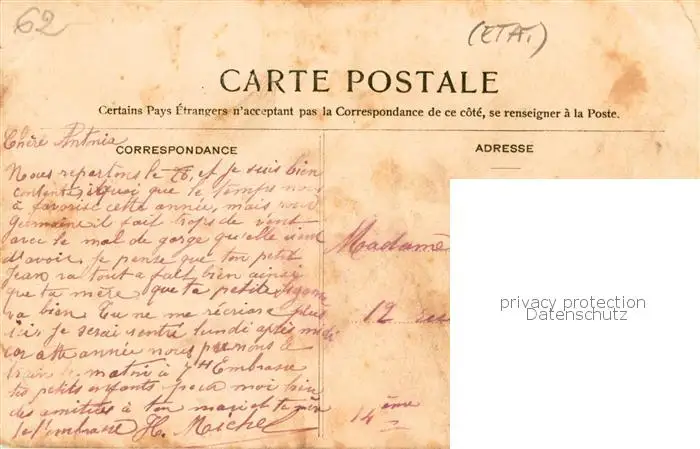 62
(ETA.)
CARTE POSTALE
Certains Pays Étrangers n'acceptant pas la Correspondance de ce côté, se renseigner à la Poste.
CORRESPONDANCE
ADRESSE
Chère Antonia
Nous repartons le et je suis bien
contente quoi que le temps nous
à favorisé cette année, mais pour
Germaine il fait trops de vent
avec le mal de gorge qu'elle vient
d'avoir. Je pense que ton petit
Jean va tout a fait bien ainsi
que ta mère que ta petite
va bien. Tu ne me récriras plus
ici, je serai rentré lundi après midi
car cette année nous prenons le
train le matin à 7H Embrasse
tes petits enfants pour moi bien
des amitiés à ton mari et ta mère
Je t'embrasse H. Michel
Madame
12 rue
14ème
privacy protection
Datenschutz